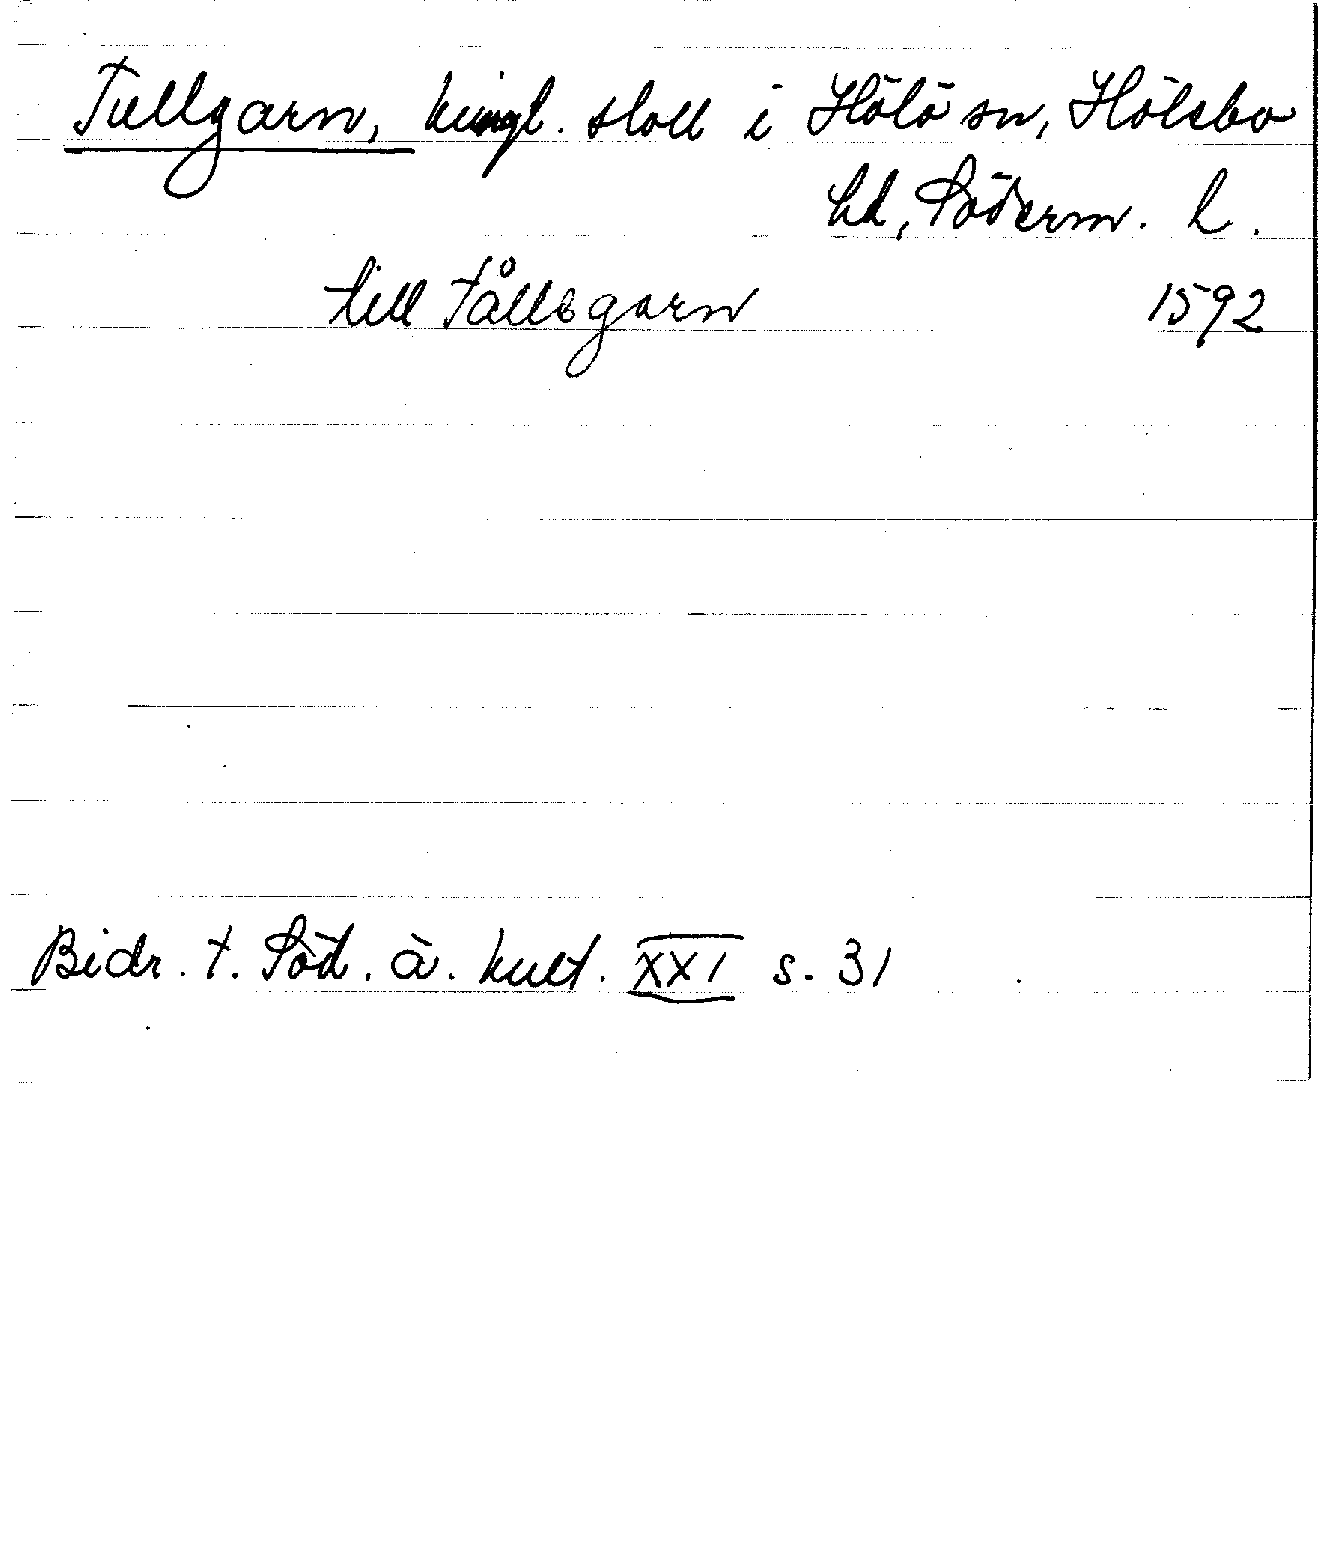 Tullgarn, kungl. slott i Hölö sn, Hölebo
hd, Söderm. l.
till Tållsgarn 1592
Bidr. t. Söd. ä. kult. XXI s. 31